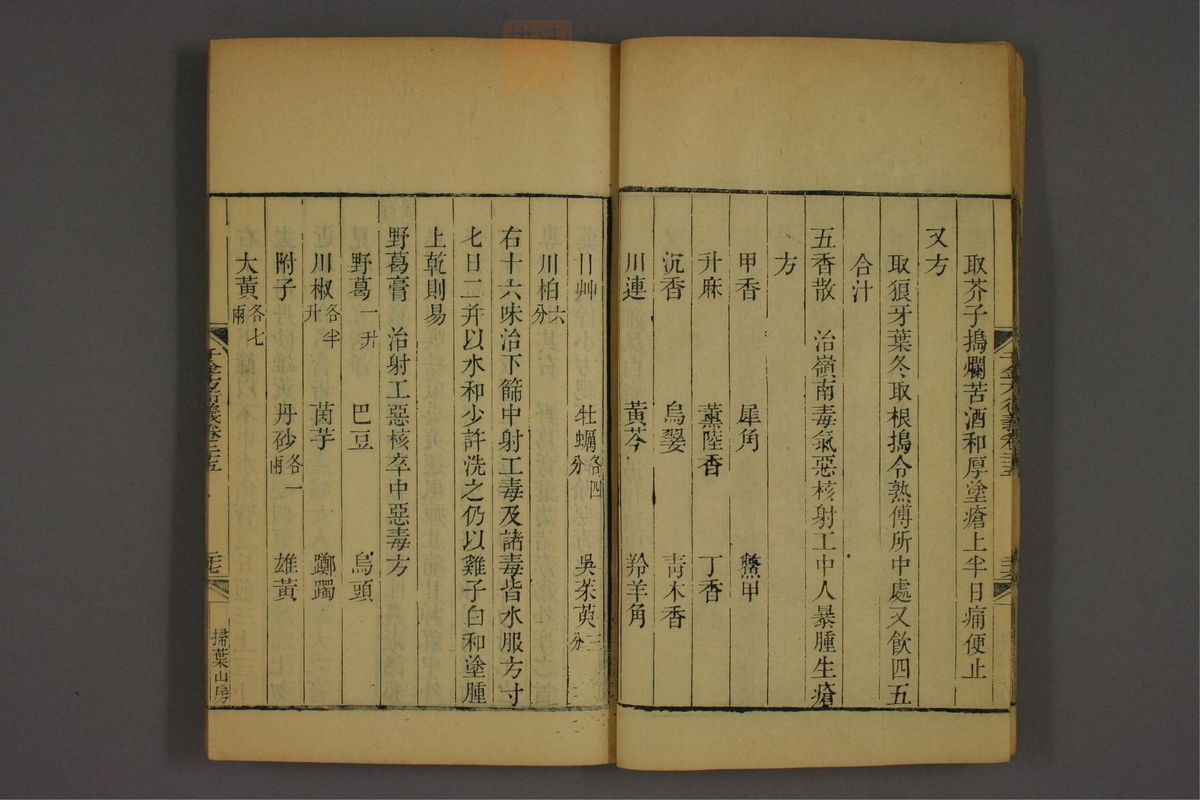 取芥子搗爛苦酒和厚塗瘡上半日痛便止
又方
取狼牙葉冬取根搗令熟傅所中處又飲四五
合汁
五香散　治嶺南毒氣惡核射工中人暴腫生瘡
方
甲香　犀角　鱉甲
升麻　薰陸香　丁香
沉香　烏翣　青木香
川連　黃芩　羚羊角
甘艸　牡蠣各四分　吳茱萸三分
川柏六分
右十六味治下篩中射工毒及諸毒皆水服方寸
七日二并以水和少許洗之仍以雞子白和塗腫
上乾則易
野葛膏　治射工惡核卒中惡毒方
野葛一升　巴豆　烏頭
川椒各半升　茵芋　躑躅
附子　丹砂各一兩　雄黃
大黃各七兩
千金方衍義卷二十五
掃葉山房